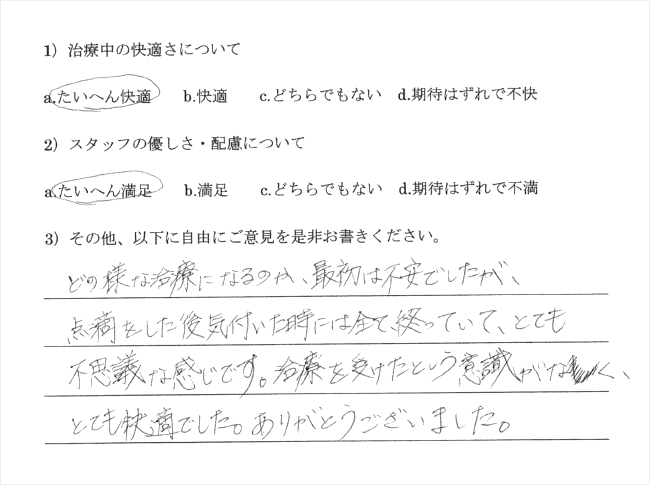 1）治療中の快適さについて
a.たいへん快適　b.快適　c.どちらでもない　d.期待はずれで不快
2）スタッフの優しさ・配慮について
a.たいへん満足　b.満足　c.どちらでもない　d.期待はずれで不満
3）その他、以下に自由にご意見を是非お書きください。
どの様な治療になるのか、最初は不安でしたが、
点滴をした後気付いた時には全て終っていて、とても
不思議な感じです。治療を受けたという意識がなく、
とても快適でした。ありがとうございました。